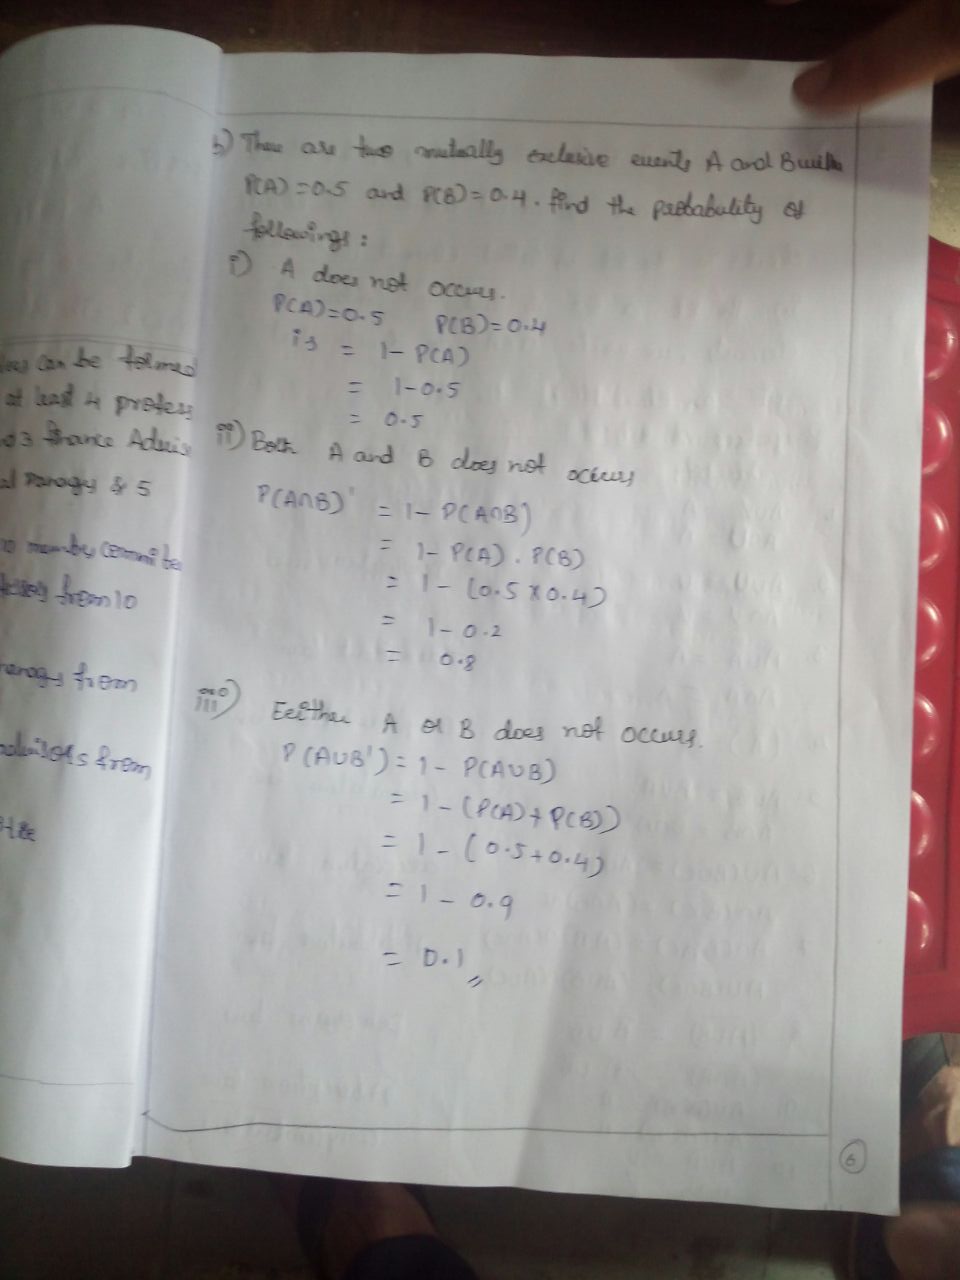 lees can be formed
at least 4 profess
03 finance Advis
al Manages & 5
10 member commitee
from 10
manages from
advisors from
b) There are two mutually exclusive events A and B with
P(A) = 0.5 and P(B) = 0.4. find the probability of
followings :
i) A does not occurs.
P(A) = 0.5 P(B) = 0.4
is = 1 - P(A)
= 1 - 0.5
= 0.5
ii) Both A and B does not occurs
P(A∩B)' = 1 - P(A∩B)
= 1 - P(A) . P(B)
= 1 - (0.5 x 0.4)
= 1 - 0.2
= 0.8
iii) Eeither A or B does not occurs.
P(A∪B') = 1 - P(A∪B)
= 1 - (P(A) + P(B))
= 1 - (0.5 + 0.4)
= 1 - 0.9
= 0.1
6